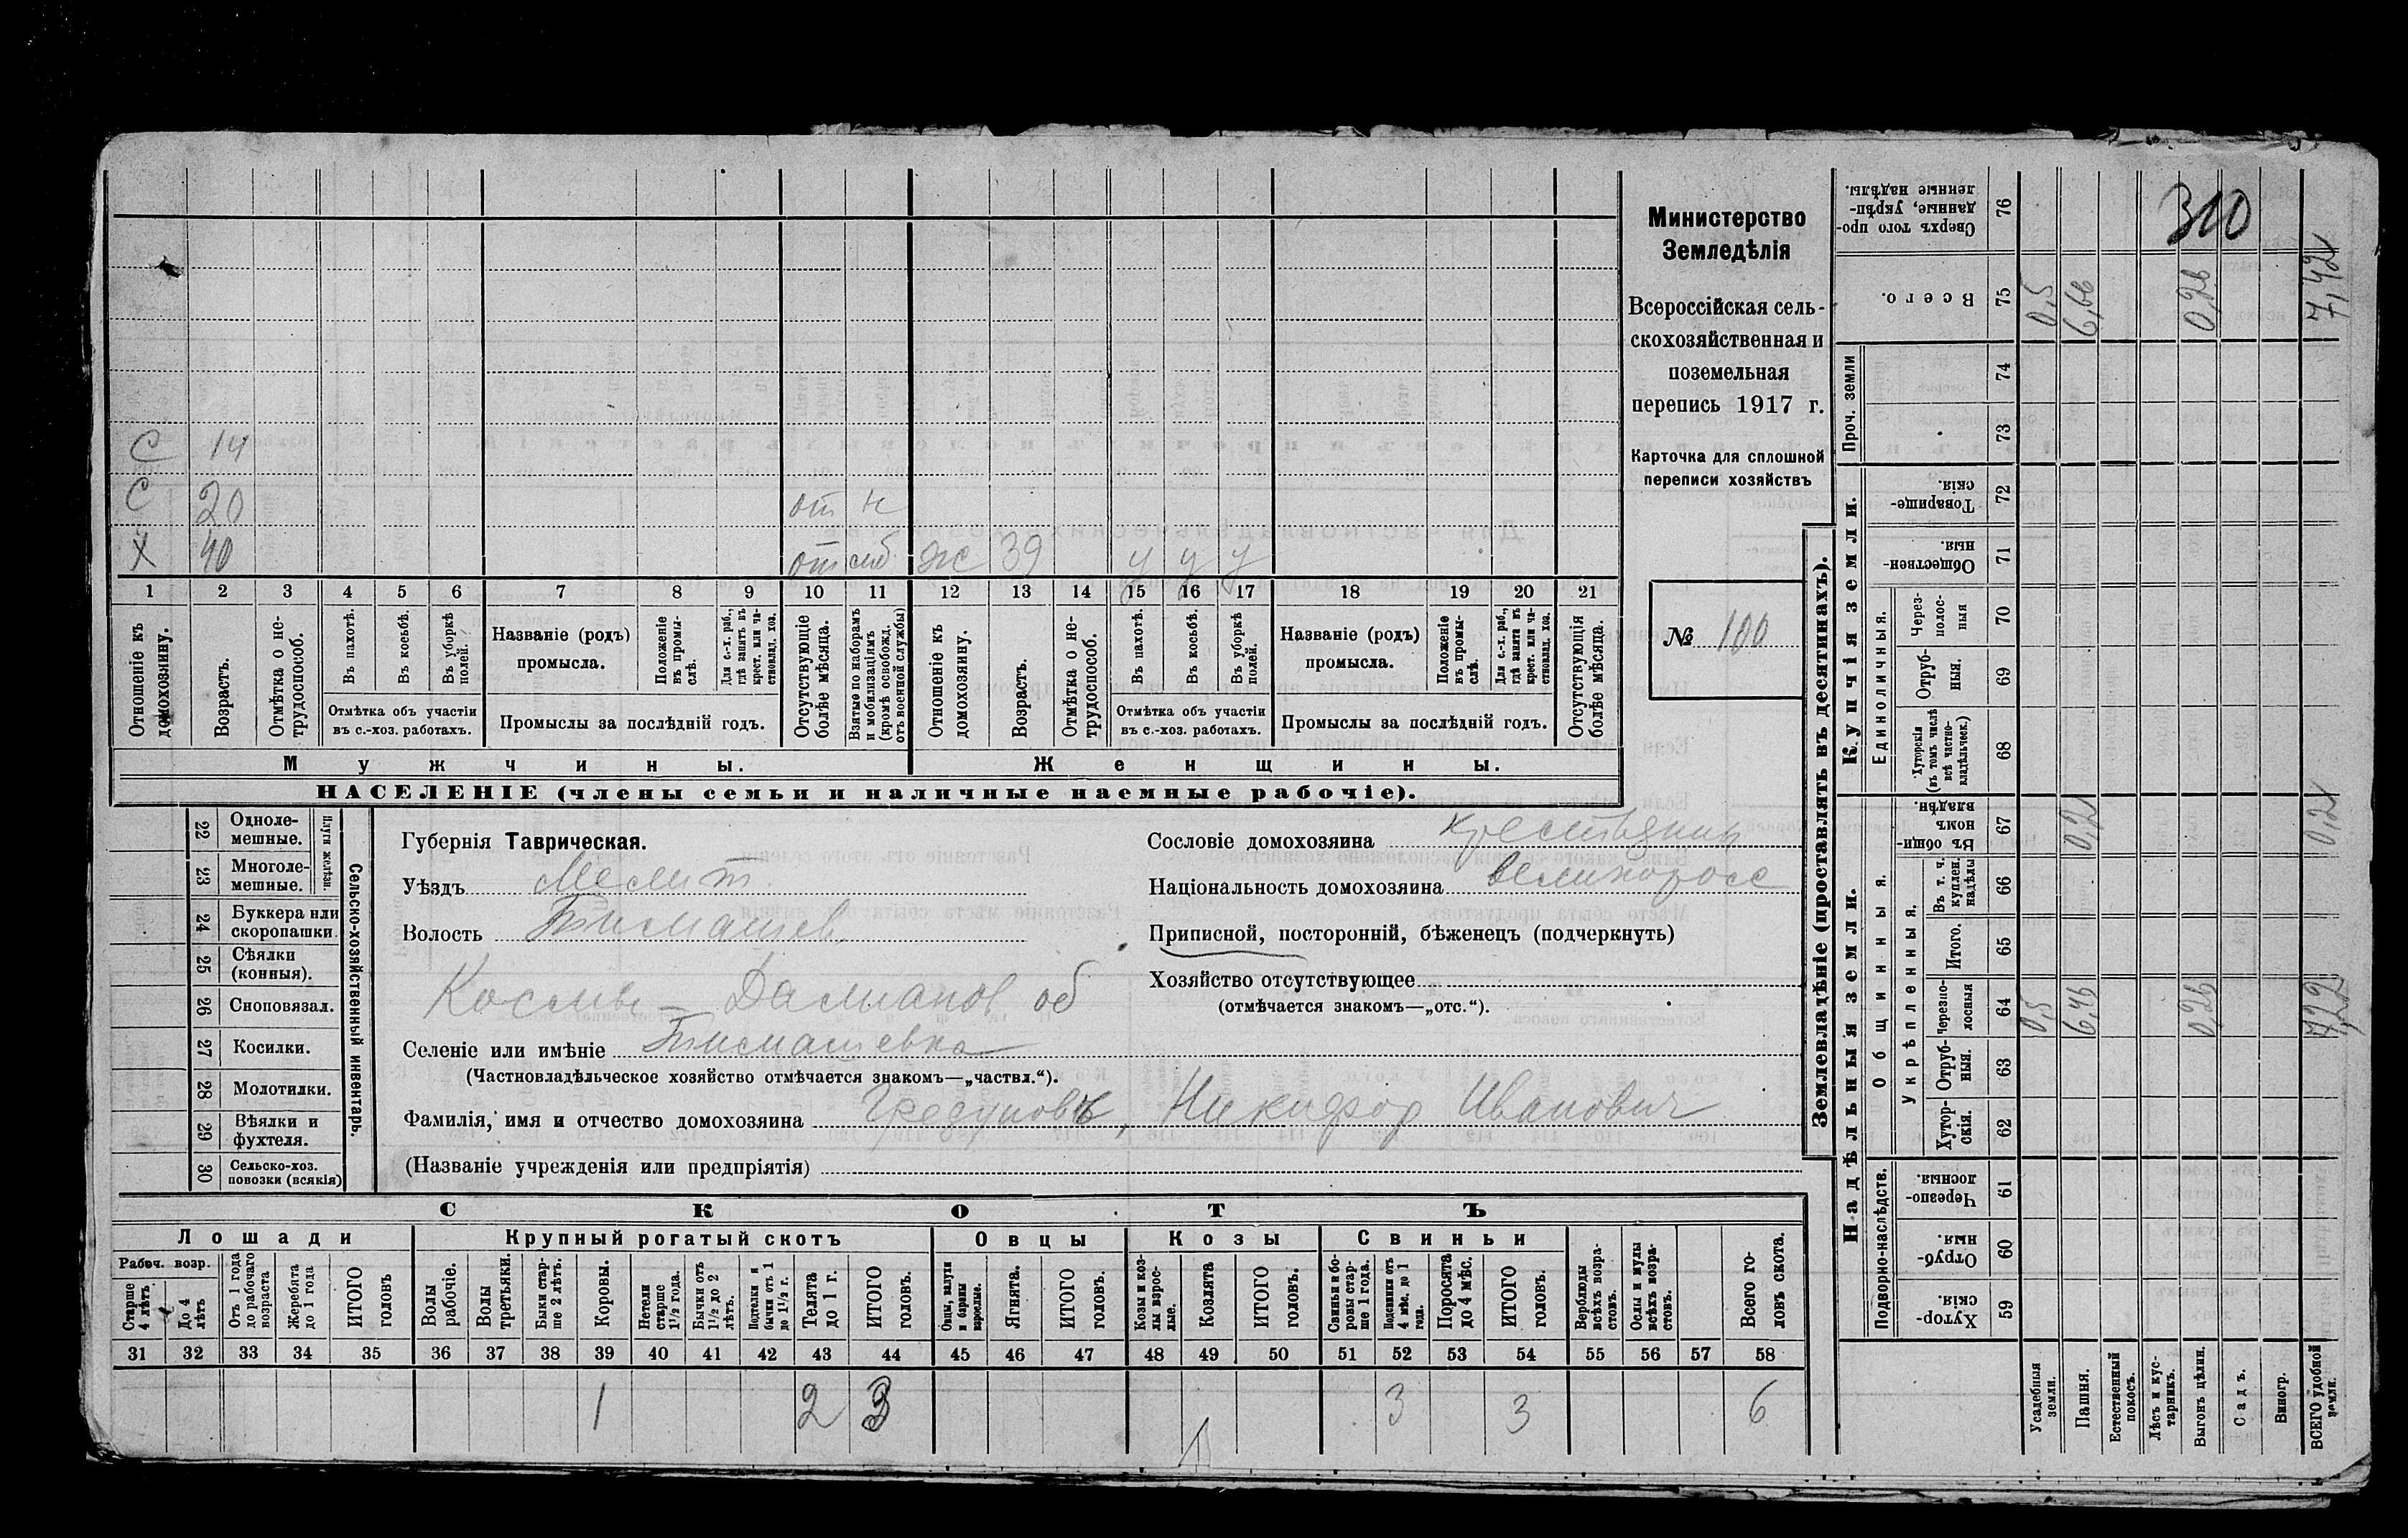 С 14
С 20 от н
Х 40 от моб ж 39 у у у
1 2 3 4 5 6 7 8 9 10 11 12 13 14 15 16 17 18 19 20 21
Отношеніе къ домохозяину.
Возрастъ.
Отмѣтка о не-трудоспособ.
Въ пахотѣ.
Въ косьбѣ.
Въ уборкѣ полей.
Отмѣтка объ участіи
въ с.-хоз. работахъ.
Названіе (родъ)
промысла.
Положеніе въ промы-слѣ.
Для с.-х. раб., гдѣ занятъ въ крест. или ча-стновлад. хоз.
Промыслы за послѣдній годъ.
Отсутствующіе болѣе мѣсяца.
Взятые по наборамъ и мобилизаціямъ (кромѣ освобожд. отъ военной службы)
Отношеніе къ домохозяину.
Возрастъ.
Отмѣтка о не-трудоспособ.
Въ пахотѣ.
Въ косьбѣ.
Въ уборкѣ полей.
Отмѣтка объ участіи
въ с.-хоз. работахъ.
Названіе (родъ)
промысла.
Положеніе въ промы-слѣ.
Для с.-х. раб., гдѣ занята въ крест. или ча-стновлад. хоз.
Промыслы за послѣдній годъ.
Отсутствующія болѣе мѣсяца.
Мужчины. Женщины.
НАСЕЛЕНІЕ (члены семьи и наличные наемные рабочіе).
Министерство
Земледѣлія
Всероссійская сель-
скохозяйственная и
поземельная
перепись 1917 г.
Карточка для сплошной
переписи хозяйствъ
№ 100
22 Одноле-мешные.
23 Многоле-мешные.
Плуги желѣзн.
24 Буккера или скоропашки
25 Сѣялки (конныя).
26 Сноповязал.
27 Косилки.
28 Молотилки.
29 Вѣялки и фухтеля.
30 Сельско-хоз. повозки (всякія)
Сельско-хозяйственный инвентарь.
Губернія Таврическая.
Уѣздъ Мелит.
Волость Тимашев.
Космо-Дамианов об
Селеніе или имѣніе Тимашевка
(Частновладѣльческое хозяйство отмѣчается знакомъ—„частвл.“).
Фамилія, имя и отчество домохозяина Никифор Иванович
(Названіе учрежденія или предпріятія)
Сословіе домохозяина крестьянин
Національность домохозяина великоросс
Приписной, посторонній, бѣженецъ (подчеркнуть)
Хозяйство отсутствующее
(отмѣчается знакомъ—„отс.“).
СКОТЪ
Лошади Крупный рогатый скотъ Овцы Козы Свиньи
Рабоч. возр.
Старше 4 лѣтъ.
До 4 лѣтъ
Отъ 1 года до рабочаго возраста
Жеребята до 1 года
ИТОГО головъ
Волы рабочіе.
Волы третьяки.
Быки стар-ше 2 лѣтъ.
Коровы.
Нетели старше 1½ года.
Бычки отъ 1½ до 2 лѣтъ.
Подтелки и бычки отъ 1 до 1½ г.
Телята до 1 г.
ИТОГО головъ.
Овцы, валухи и бараны взрослые.
Ягнята.
ИТОГО головъ.
Козы и коз-лы взрос-лые.
Козлята
ИТОГО головъ.
Свиньи и бо-ровы стар-ше 1 года.
Подсвинки отъ 4 мѣс. до 1 года.
Поросята до 4 мѣс.
ИТОГО головъ.
Верблюды всѣхъ возра-стовъ.
Ослы и мулы всѣхъ возра-стовъ.
Всего го-ловъ скота.
31 32 33 34 35 36 37 38 39 40 41 42 43 44 45 46 47 48 49 50 51 52 53 54 55 56 57 58
1 2 3 3 3 6
Землевладѣніе (проставлять въ десятинахъ).
Надѣльныя земли. Купчія земли. Проч. земли
Подворно-наслѣдств.
Общинныя.
Укрѣпленныя.
Единоличныя.
59 Хутор-скія.
60 Отруб-ныя.
61 Черезпо-лосныя.
62 Хутор-скія.
63 Отруб-ныя.
64 Черезпо-лосныя 0,5 6,46 0,26 7,22
65 Итого.
66 Въ т. ч. куплен. надѣлы
67 Въ общин-номъ владѣн. 0,2 0,2
68 Хуторскія (въ томъ числѣ всѣ частно-владѣльческ.)
69 Отруб-ныя.
70 Через-полос-ныя
71 Обществен-ныя.
72 Товарище-скія.
73
74
75 Всего. 0,5 6,66 0,26 7,42
76 Сверхъ того про-данные, укрѣп-ленные надѣлы.
310
Усадебныя земли.
Пашня.
Естественный покосъ.
Лѣсъ и кус-тарникъ.
Выгонъ цѣлин.
Садъ.
Виногр.
ВСЕГО удобной земли.